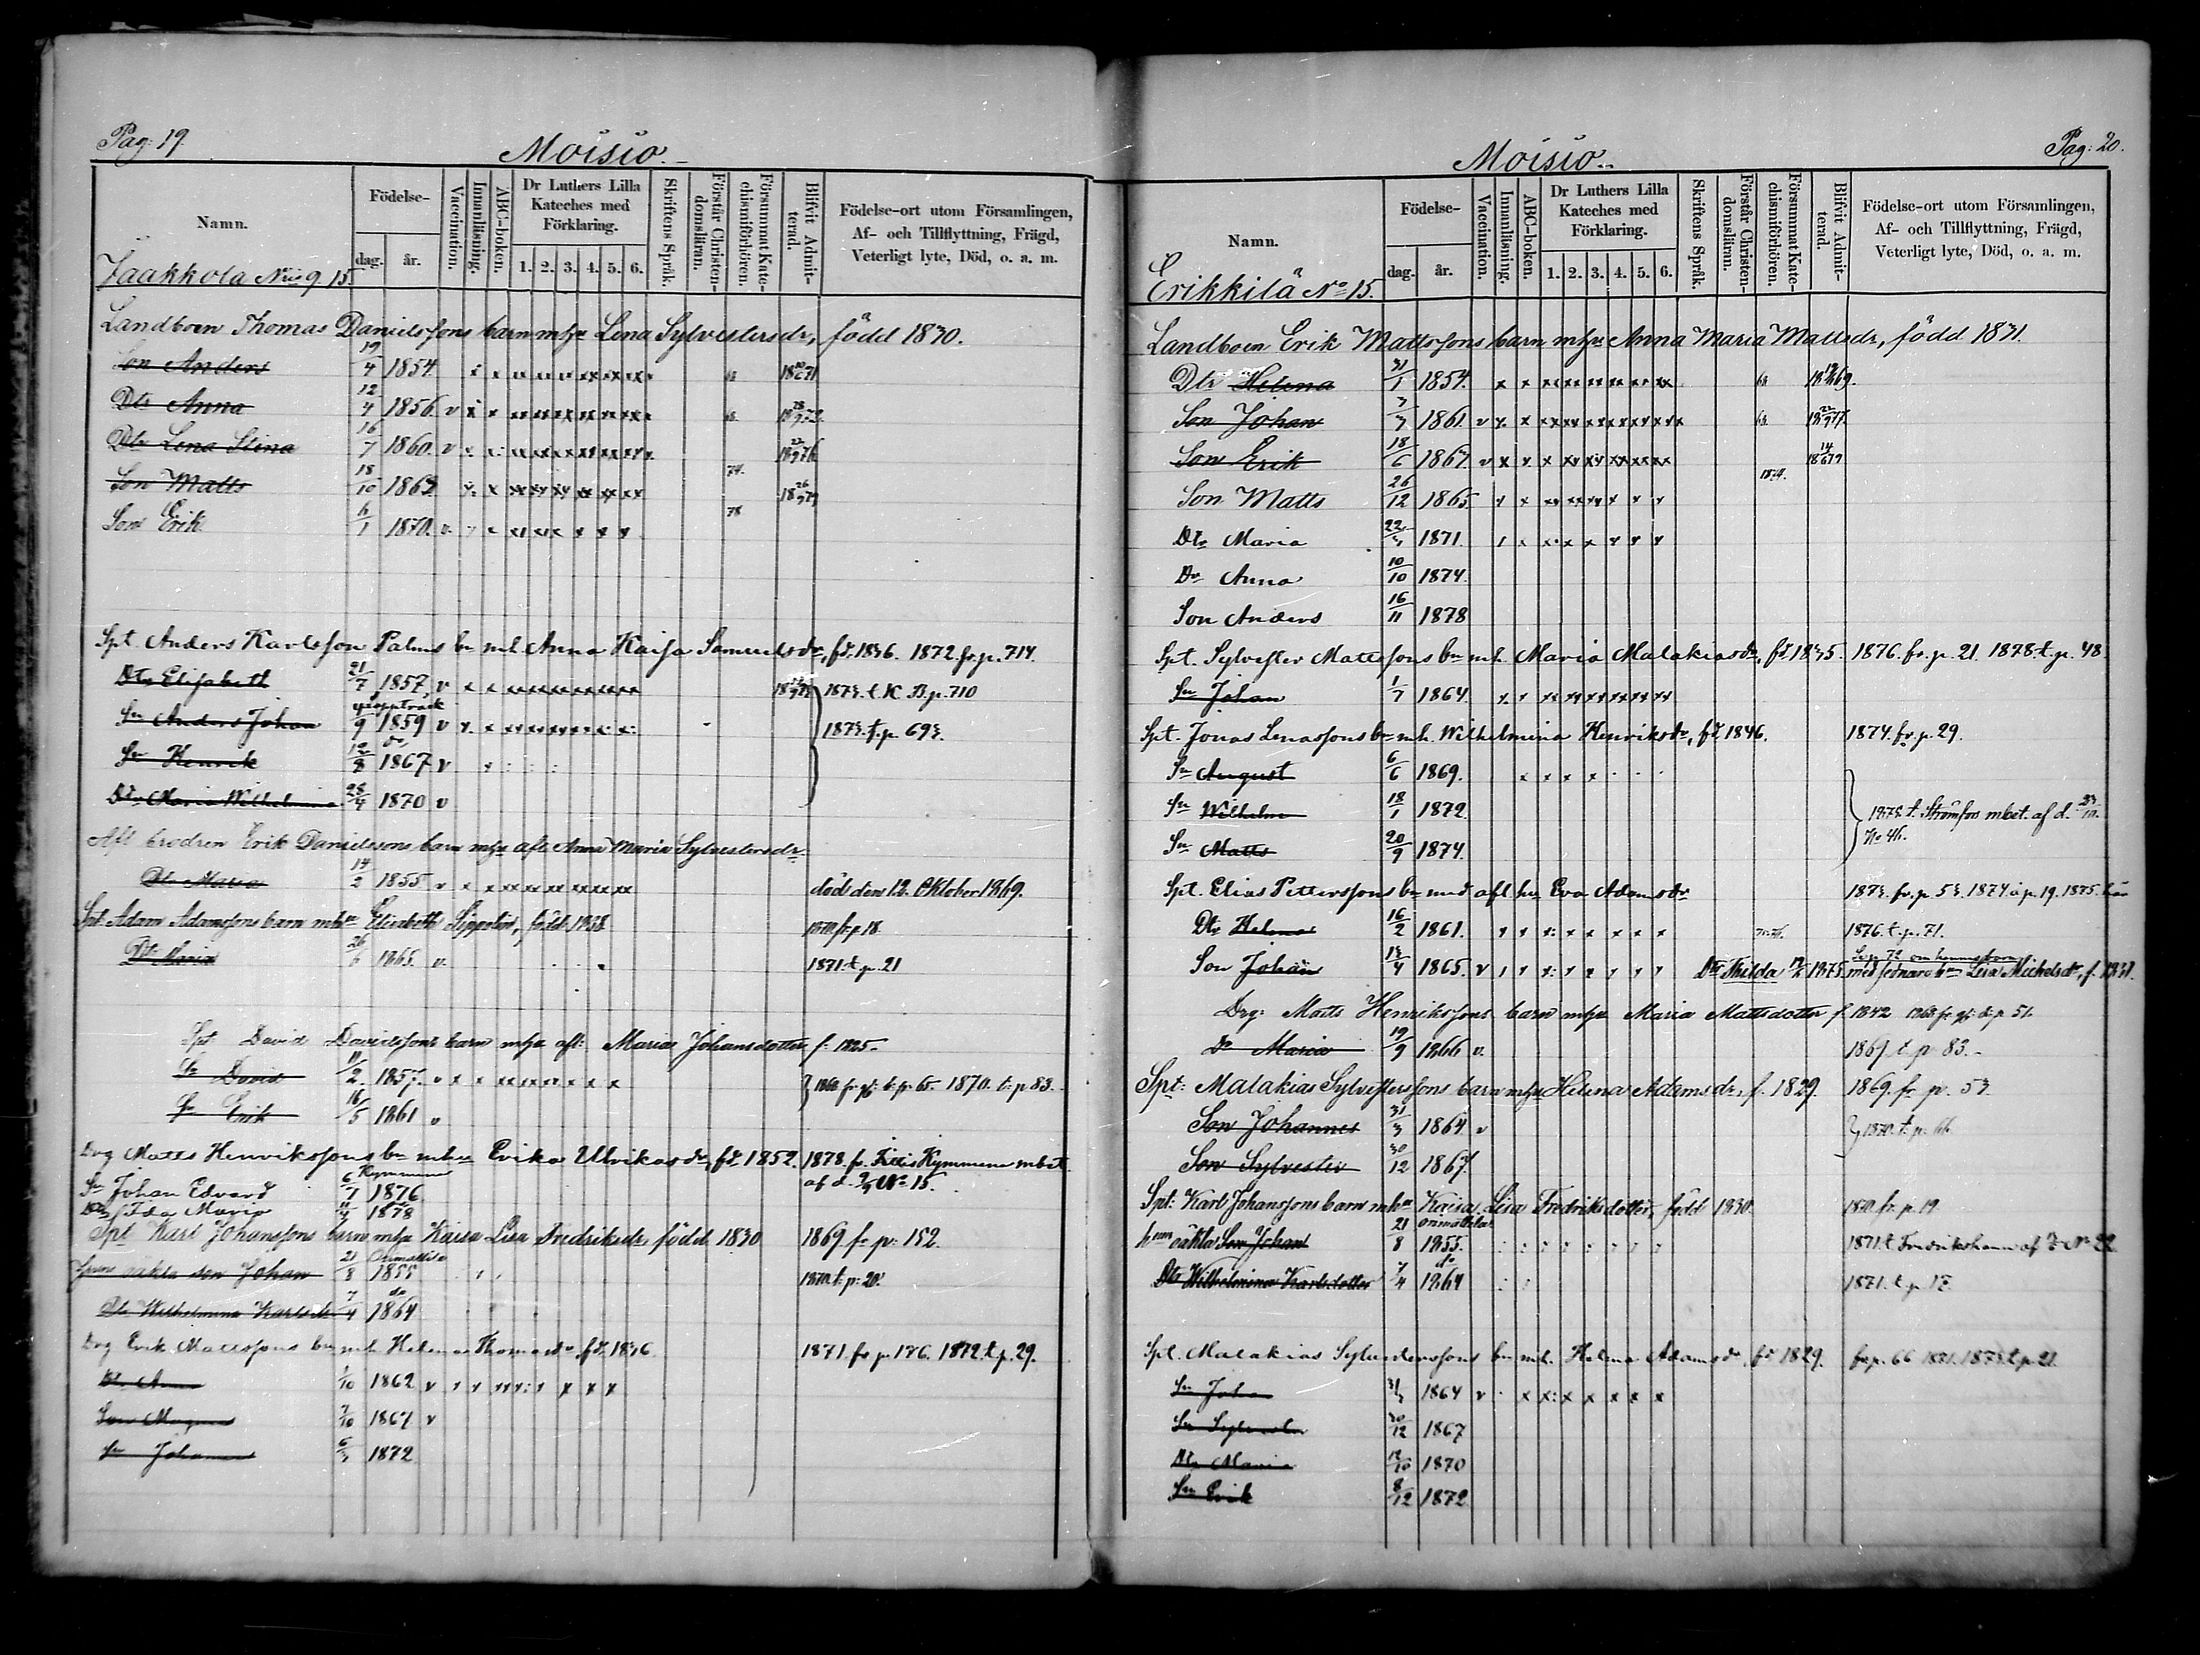 Pag: 19.
Moisio.
Namn.
Födelse-
dag.
år.
Vaccination.
Innanläsning.
ABC-boken.
Dr Luthers Lilla
Kateches med
Förklaring.
1. 2. 3. 4. 5. 6.
Skriftens Språk.
Förstår Christen-
domsläran.
Försummat Kate-
chismiförhören.
Blifvit Admit-
terad.
Födelse-ort utom Församlingen,
Af- och Tillflyttning, Frägd,
Veterligt lyte, Död, o. a. m.
Jaakkola 9. 15.
Landboen Thomas Danielssons barn mhu Lena Sylvestersdr, född 1830.
Son Anders 19/4 1854
Dtr Anna 12/4 1856. v
Dtr Lena Stina 16/7 1860. v
Son Matts 18/10
Son Erik 6/1 1870. v
Spt. Anders Karlsson Palms bn mh Anna Kaisa Samuelsdr, fd. 1836. 1872 fr. p. 714.
Dtr Elisabeth 21/7 1857, v 1873. t. K. B. p. 710
Sn Anders Johan /9 1859 v 1873. t. p. 693.
Sn Henrik 12/8 1867 v
Dtr Maria Wilhelmina 28/4 1870 v
Afl brodren Erik Danielssons barn mhu afl. Anna Maria Sylvestersdr
Dtr Maria 14/2 1855 v död den 12. Oktober 1869.
Spt. Adam Adamssons barn mhu Elisabeth Sippolin, född 1838 1870. fr. p. 18.
Dtr Maria 26/6 1865. v. 1871. t. p. 21
Spt David Davidssons barn mhu afl. Maria Johansdotter f. 1825.
Sn David 11/2. 1857. v 1870. t. p 83.
Sn Erik 16/5 1861 v
Drg Matts Henrikssons bn mhu Erika Ulrikasdr, fd. 1852. 1878. fr. Kymmene mbet
Kymmene af d. No 15.
Sn Johan Edvard 6/7 1876
Dtr Ida Maria 1878
Spt Karl Johanssons barn mhu Kaisa Lisa Fredriksdr, född 1830 1869 fr p: 152.
oäkta son Johan 21/8 1855 1870. t. p: 20.
Dtr Wilhelmina Karlsdr 7/4 do 1864
Drg Erik Mattssons bn mh Helena Thomasdr fd. 1836 1871. fr p. 176. 1872. t. p. 29.
Dtr Anna 1/10 1862 v
Son Magnus 7/10 1867 v
Sn Johannes 6/3 1872
Pag: 20.
Moisio.
Namn.
Födelse-
dag.
år.
Vaccination.
Innanläsning.
ABC-boken.
Dr Luthers Lilla
Kateches med
Förklaring.
1. 2. 3. 4. 5. 6.
Skriftens Språk.
Förstår Christen-
domsläran.
Försummat Kate-
chismiförhören.
Blifvit Admit-
terad.
Födelse-ort utom Församlingen,
Af- och Tillflyttning, Frägd,
Veterligt lyte, Död, o. a. m.
Erikkilä No 15.
Landboen Erik Mattssons barn mhu Anna Maria Mattsdr, född 1831.
Dtr Helena 31/1 1854.
Son Johan 3/3 1861. v
Son Erik 18/6 v
Son Matts 26/12 1865
Dtr Maria 22/3 1871.
Dr Anna 10/10 1874.
Son Anders 16/11 1878
Spt. Sylvester Mattssons bn mh. Maria Malakiasdr, fd. 1835. 1876. fr. p. 21. 1878. t. p. 48
Sn Johan 1/7 1864.
Spt. Jonas Lenassons bn mh. Wilhelmina Henriksdr, fd. 1846. 1874. fr. p. 29.
Sn August 6/6 1869.
Sn Wilhelm 18/1 1872 t. Strömfors mbet. af d.
Sn Matts 20/9 1874. No 46.
Spt. Elias Petterssons bn med afl hu Eva Adamsdr 1873. fr. p. 53. 1874 à p. 19. 1875. här
Dtr Helena 16/2 1861. 1876. t. p. 71.
Son Johan 13/4 1865. v Dtr Thilda 1875. med sednare hu Lisa Michelsdr,
Drg: Matts Henrikssons barn mhu Maria Mattsdotter f. 1842 p. 51.
Dr Maria 19/9 1866 v. 1869. t. p. 83.
Spt: Malakias Sylvesterssons barn mhu Helena Adamsdr, f. 1829. 1869. fr p. 53.
Son Johannes 31/3 1864 v 1870. t. p. 66.
Son Sylvester 30/12 1867
Spt: Karl Johanssons barn mhu Kaisa Lisa Fredriksdotter, född 1830. 1870. fr. p. 19.
oäkta Son Johan 21/8 Orimattila 1855. 1871. t. Fredrikshamn af No 22.
Dtr Wilhelmina Karlsdotter 7/4 do 1864 1871. t. p. 17.
Spt. Malakias bn mh. Helena Adamsdr, fd 1829. fr p. 66 1871. 1873. t. p. 21.
Sn Johan 31/3 1864 v
Sn Sylvester 30/12 1867
Dtr Maria 12/10 1870
Sn Erik 8/12 1872